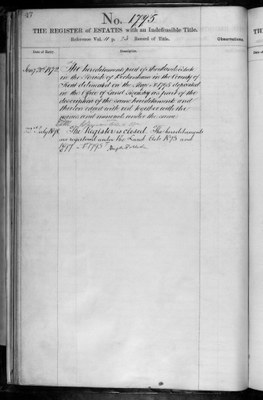 47
No. 1795
THE REGISTER of ESTATES with an Indefeasible Title.
Reference Vol. p. Record of Title.
Date of Entry.
Description.
Observations.
Aug 20th 1872
The hereditaments part of
in the Parish of in the County of
Kent delineated on the Map No 1795 deposited
in the Office of Land Registry as part of the
description of the same hereditaments and
thereon edged with red together with the
mines and minerals under the same
The Register is closed. The hereditaments
are registered under the Land Acts 1875 and
1897. No 1795